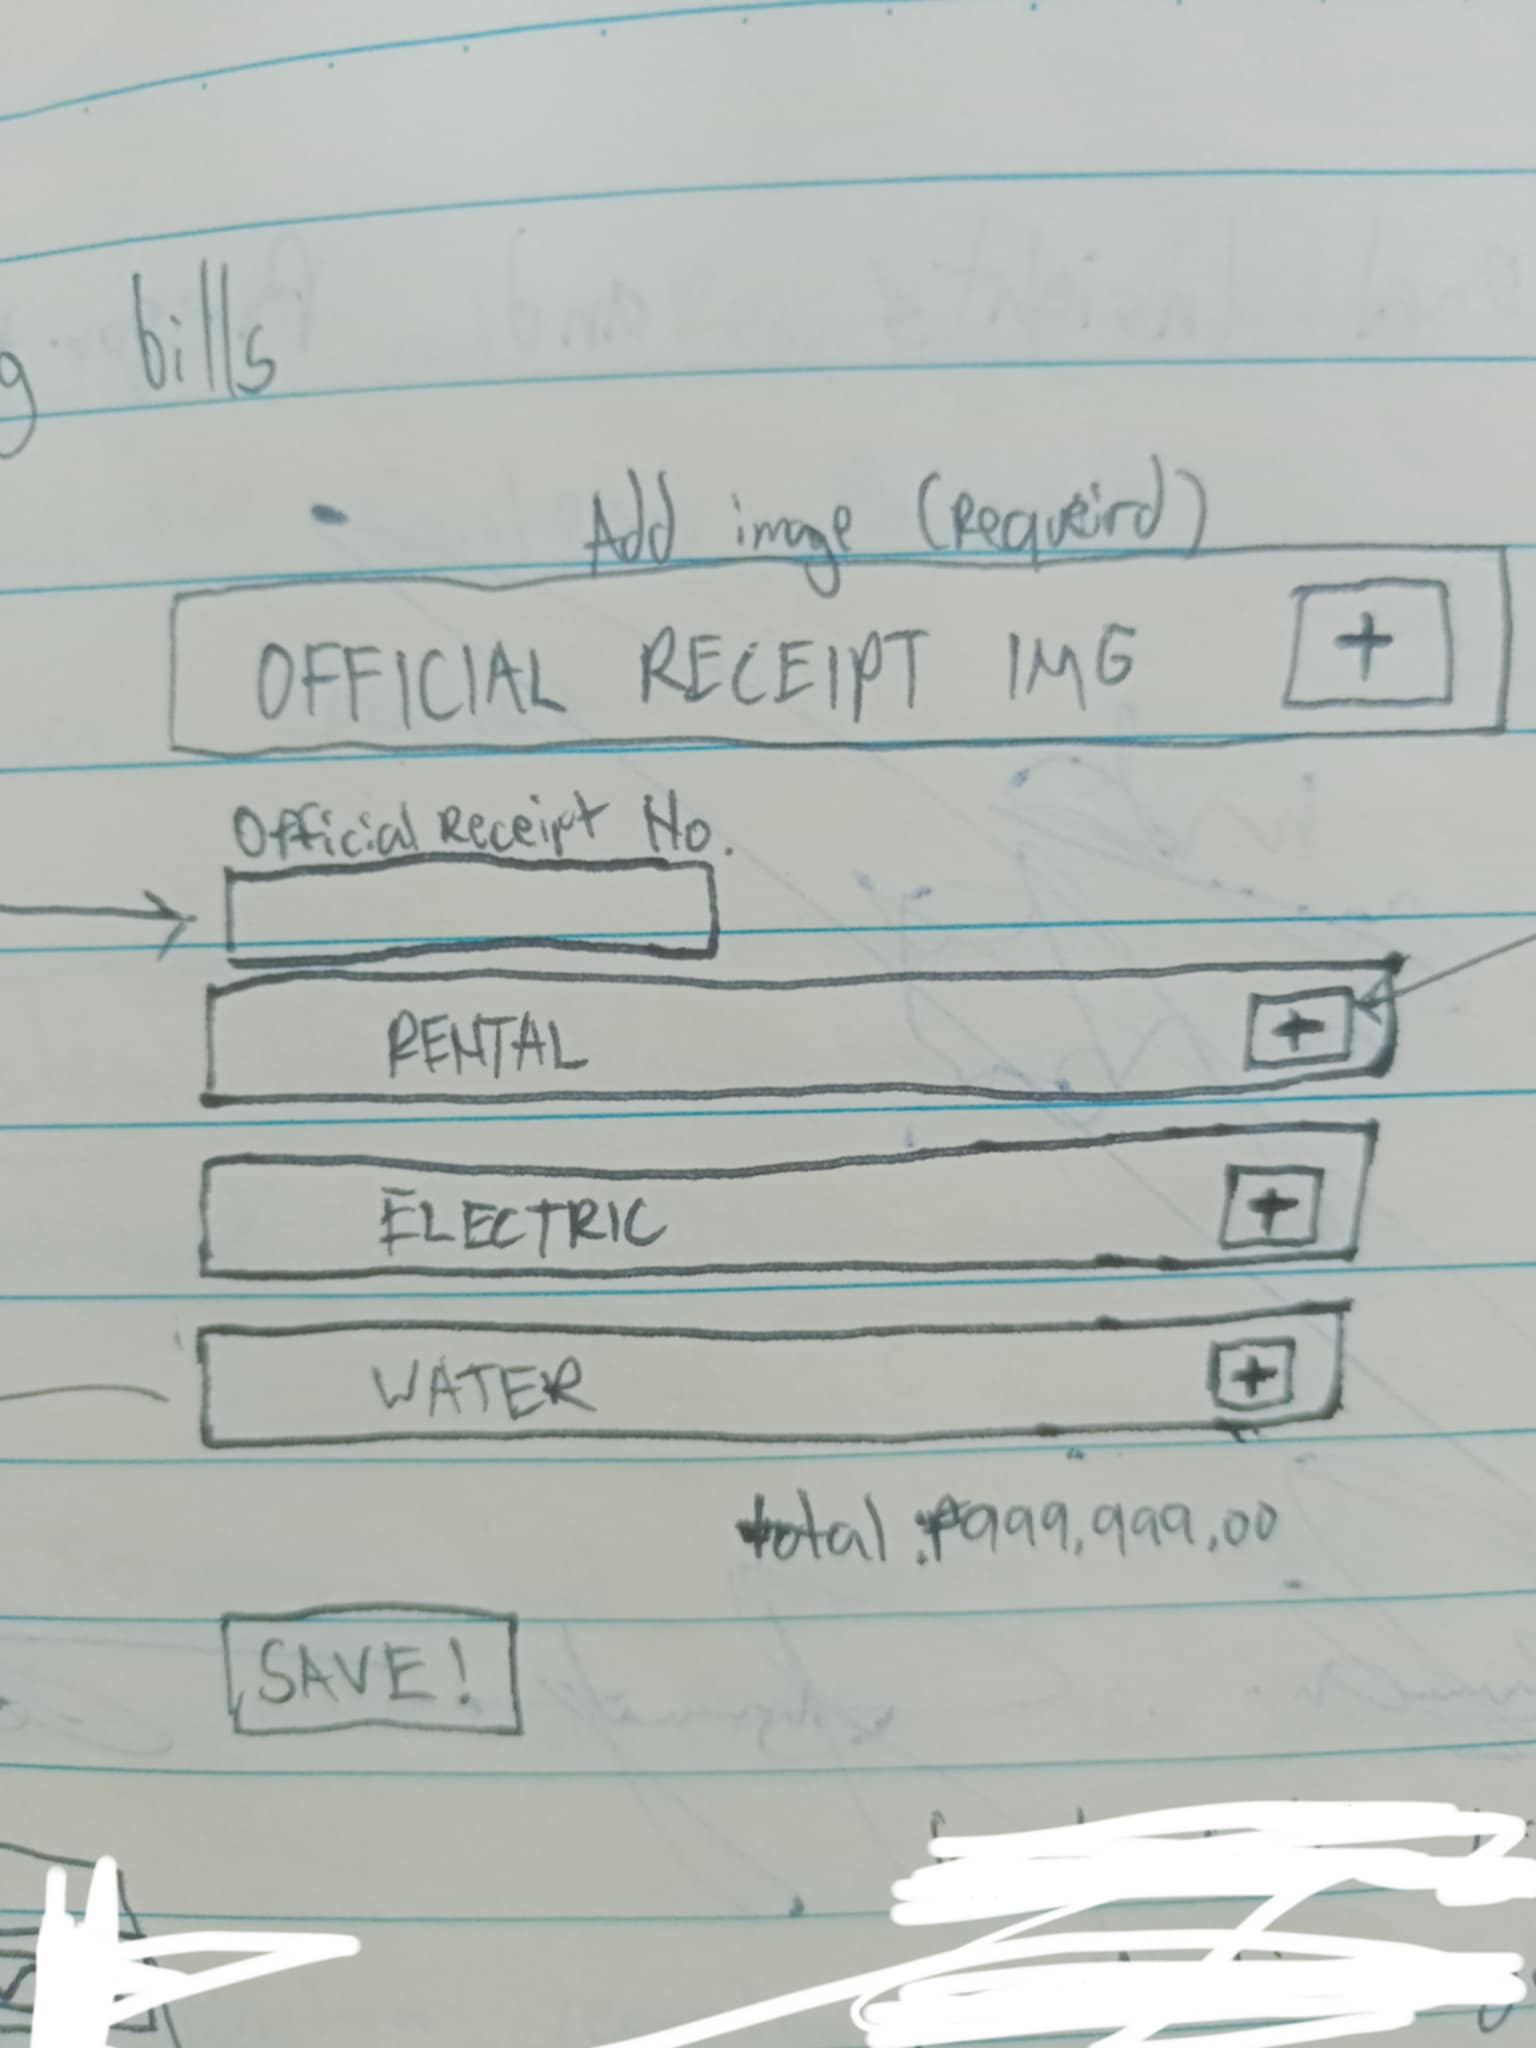 g bills
Add image (Requeird)
OFFICIAL RECEIPT IMG +
Official Receipt No.
RENTAL +
ELECTRIC +
WATER +
total : ₱999,999.00
SAVE!